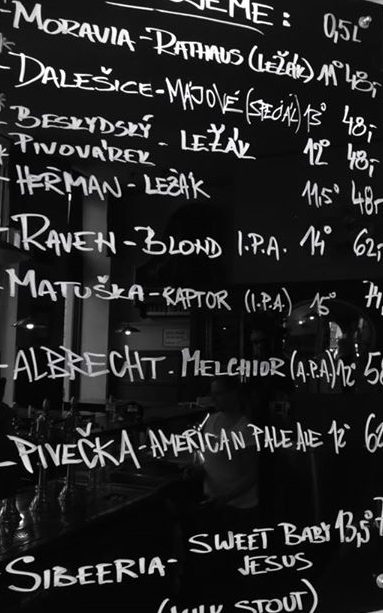 JEME: 0,5L
-MORAVIA-RATHAUS (LEŽÁK) 11° 48,-
-DALEŠICE-MÁJOVÉ (SPECIÁL) 13° 48,-
BESKYDSKÝ
PIVOVÁREK - LEŽÁK 12° 48,-
-HEŘMAN-LEŽÁK 11,5° 48,-
-RAVEN-BLOND I.P.A. 14° 62,-
-MATUŠKA-RAPTOR (I.P.A.) 15°
-ALBRECHT-MELCHIOR (A.P.A.) 12°
-PIVEČKA-AMERICAN PALE ALE 12°
SWEET BABY 13,5°
SIBEERIA- JESUS
(MILK STOUT)